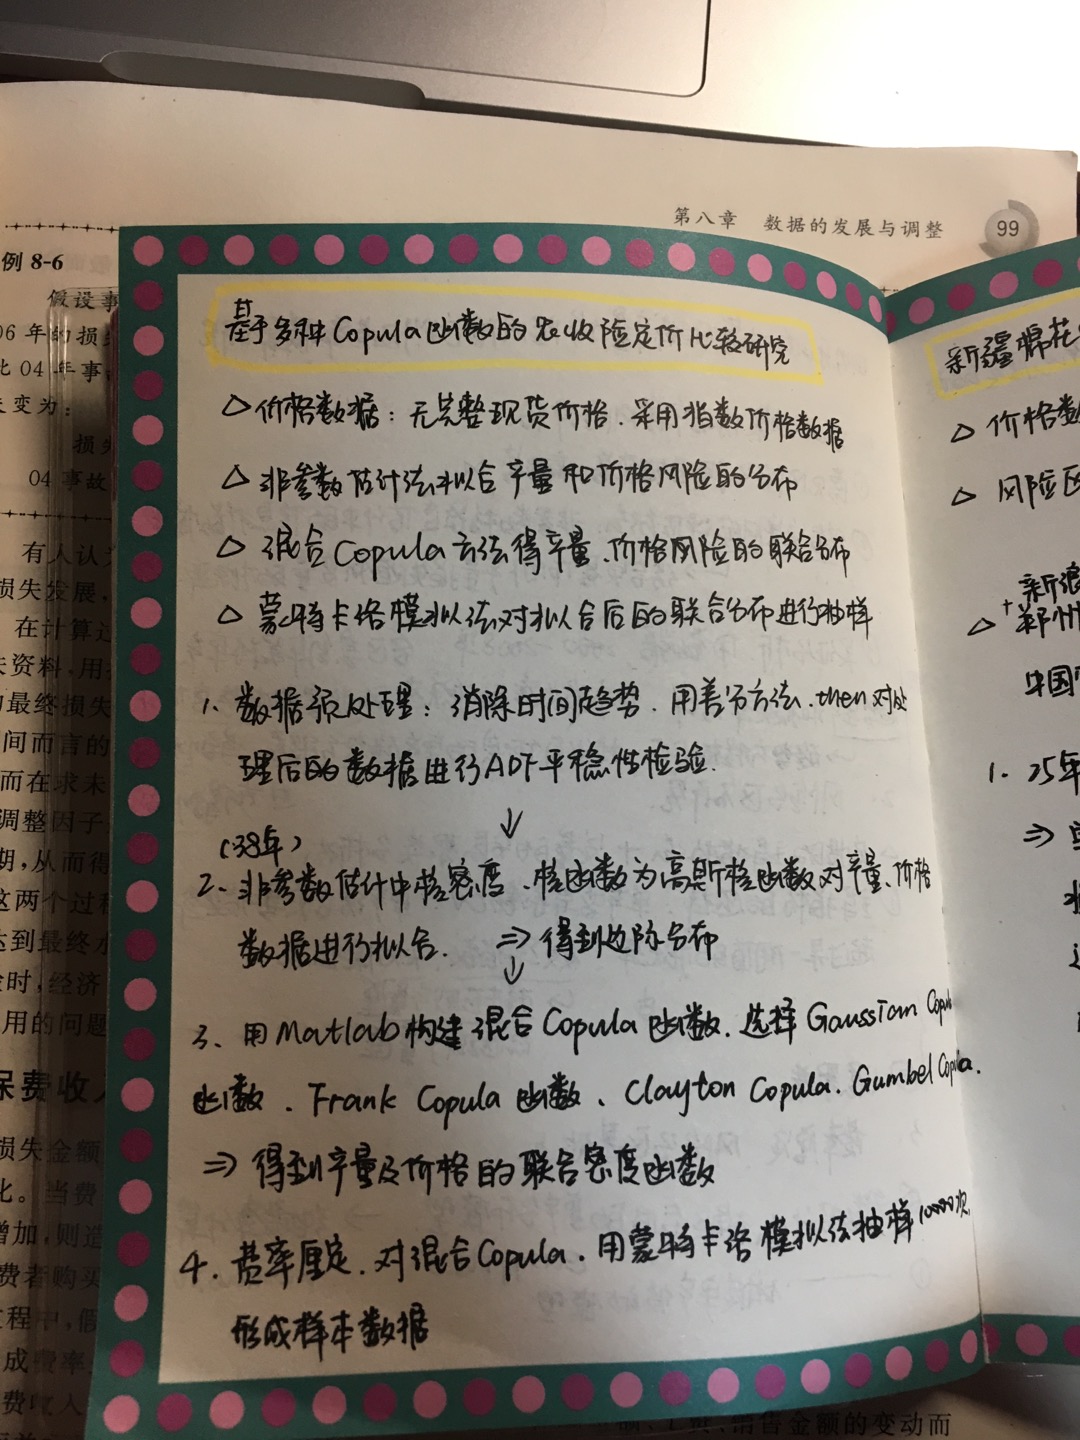 第八章 数据的发展与调整 99
例 8-6
假设事
06 年的损
比 04 年事
变为:
损失
04 事故
有人认为
损失发展,
在计算
资料,用
最终损失
间而言的
而在求未
调整因子
期,从而得
这两个过
达到最终
时,经济
用的问题
保费收
损失金额
比。当费
增加,则造
费者购买
过程中,假
成费率
费收入
基于多种Copula函数的农收险定价比较研究
△ 价格数据:无完整现货价格.采用指数价格数据
△ 非参数估计法拟合产量和价格风险的分布
△ 混合Copula方法得产量、价格风险的联合分布
△ 蒙特卡洛模拟法对拟合后的联合分布进行抽样
1、数据预处理:消除时间趋势.用差分方法.then对处
理后的数据进行ADF平稳性检验.
↓
(38年)
2、非参数估计中核密度、核函数为高斯核函数对产量、价格
数据进行拟合. ⇒ 得到边际分布
↓
3、用Matlab构建混合Copula函数.选择Gaussian Copula
函数、Frank Copula函数、Clayton Copula、Gumbel Copula.
⇒ 得到产量及价格的联合密度函数
4、费率厘定.对混合Copula.用蒙特卡洛模拟法抽样10000次
形成样本数据
新疆棉花
△ 价格数
△ 风险
新浪
△ +郑州
中国
1. 25年
⇒
销售金额的变动而